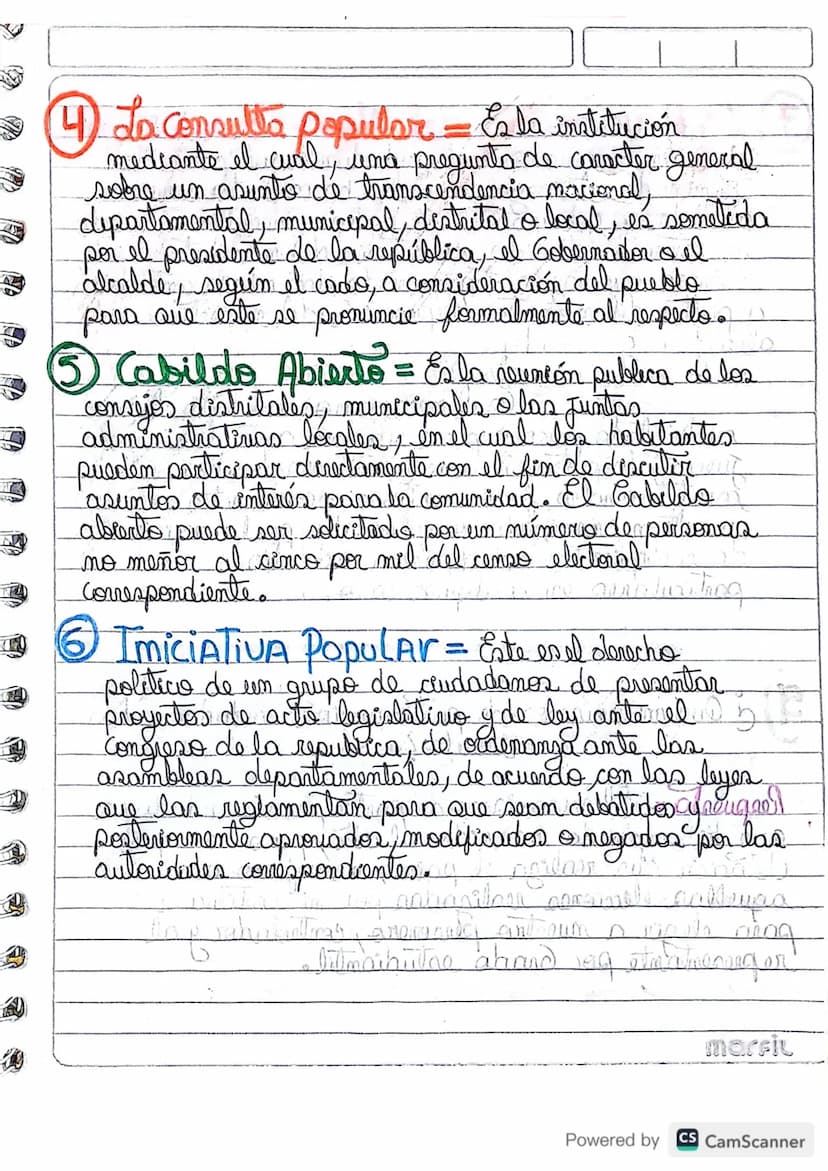 4 La Consulta popular = Es la institución
mediante el cual, una pregunta de caracter general
sobre un asunto de transcendencia nacional,
dipartamental, municipal, distrital o local, es sometida
por el presidente de la república, el Gobernador o el
alcalde, según el cado, a consideración del pueblo
para que este se pronuncie formalmente al respecto.
5 Cabildo Abierto = Es la reunión publica de los
consejos distritales, municipales o las Juntas
administrativas locales, en el cual los habitantes
pueden participar directamente con el fin de discutir
asuntos de interés para la comunidad. El Cabildo
abierto puede ser solicitado por un número de personas
no meñor al cinco por mil del censo electoral
correspondiente.
6 Iniciativa Popular = Este es el derecho
político de un grupo de ciudadanos de presentar
proyectos de acto legislativo y de ley ante el
Congreso de la republica, de ordenanza ante las
asambleas departamentales, de acuerdo con las leyes
que las reglamentan para que sean debatidos y
posteriormente aprovados, modificados o negados por las
autoridades correspondientes.
marfil
Powered by CS CamScanner